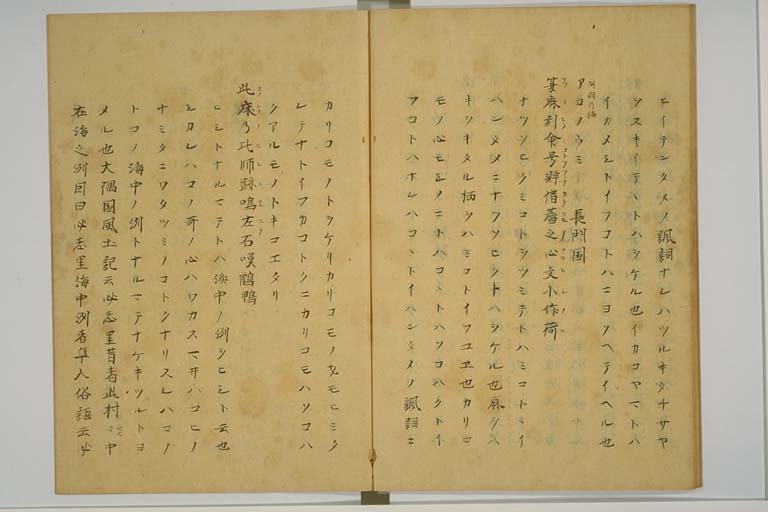 ニイテンタメノ諷詞ナレハツルキタチサヤ
シヌキイテヽトハツヽケル也イカコヤマトハ
イカメシトイフコトハニヨソヘテイヘル也
アコノウミ 長門国
ナツソヒクミコトシツミテトハミコトヽイ
ハンタメニナツソヒクトハツヽケル也麻ヲハ
キツキタル柄ヲハミコトイフユヱ也カリコ
モノ心モシノニトハコヽトハソコハクトイ
フコトハナレハコヽトイハンタメノ諷詞ニ
カリコモノトツヽケリカリコモノヲモヒミタ
レテナトイフカコトクニカリコモハソコハ
クアルモノトキコエタリ
此床乃比師跡鳴左右嘆鶴鴨
ヒシトナルマテトハ海中ノ洲ヲヒシト云也
シカレハコノ哥ノ心ハワカスマヰハコヒノ
ナミタニワタツミノコトクナリヌレハコノ
トコノ海中ノ洲トナルマテナケキツルトヨ
メル也大隅国風土記云必志里昔者此村ミヤ
在海之洲因曰必志里海中洲者隼人俗語云必